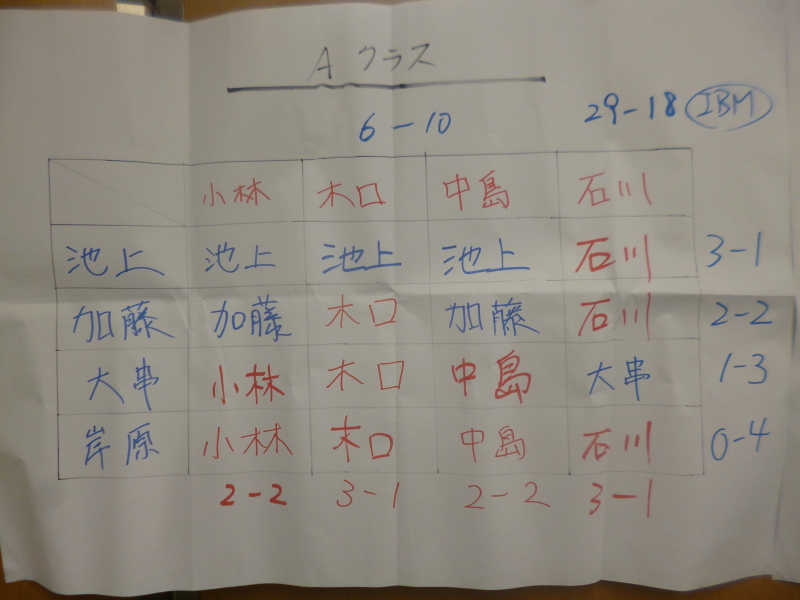 A クラス
6-10 29-18 IBM
小林 木口 中島 石川
池上 池上 池上 池上 石川 3-1
加藤 加藤 木口 加藤 石川 2-2
大串 小林 木口 中島 大串 1-3
岸原 小林 木口 中島 石川 0-4
2-2 3-1 2-2 3-1